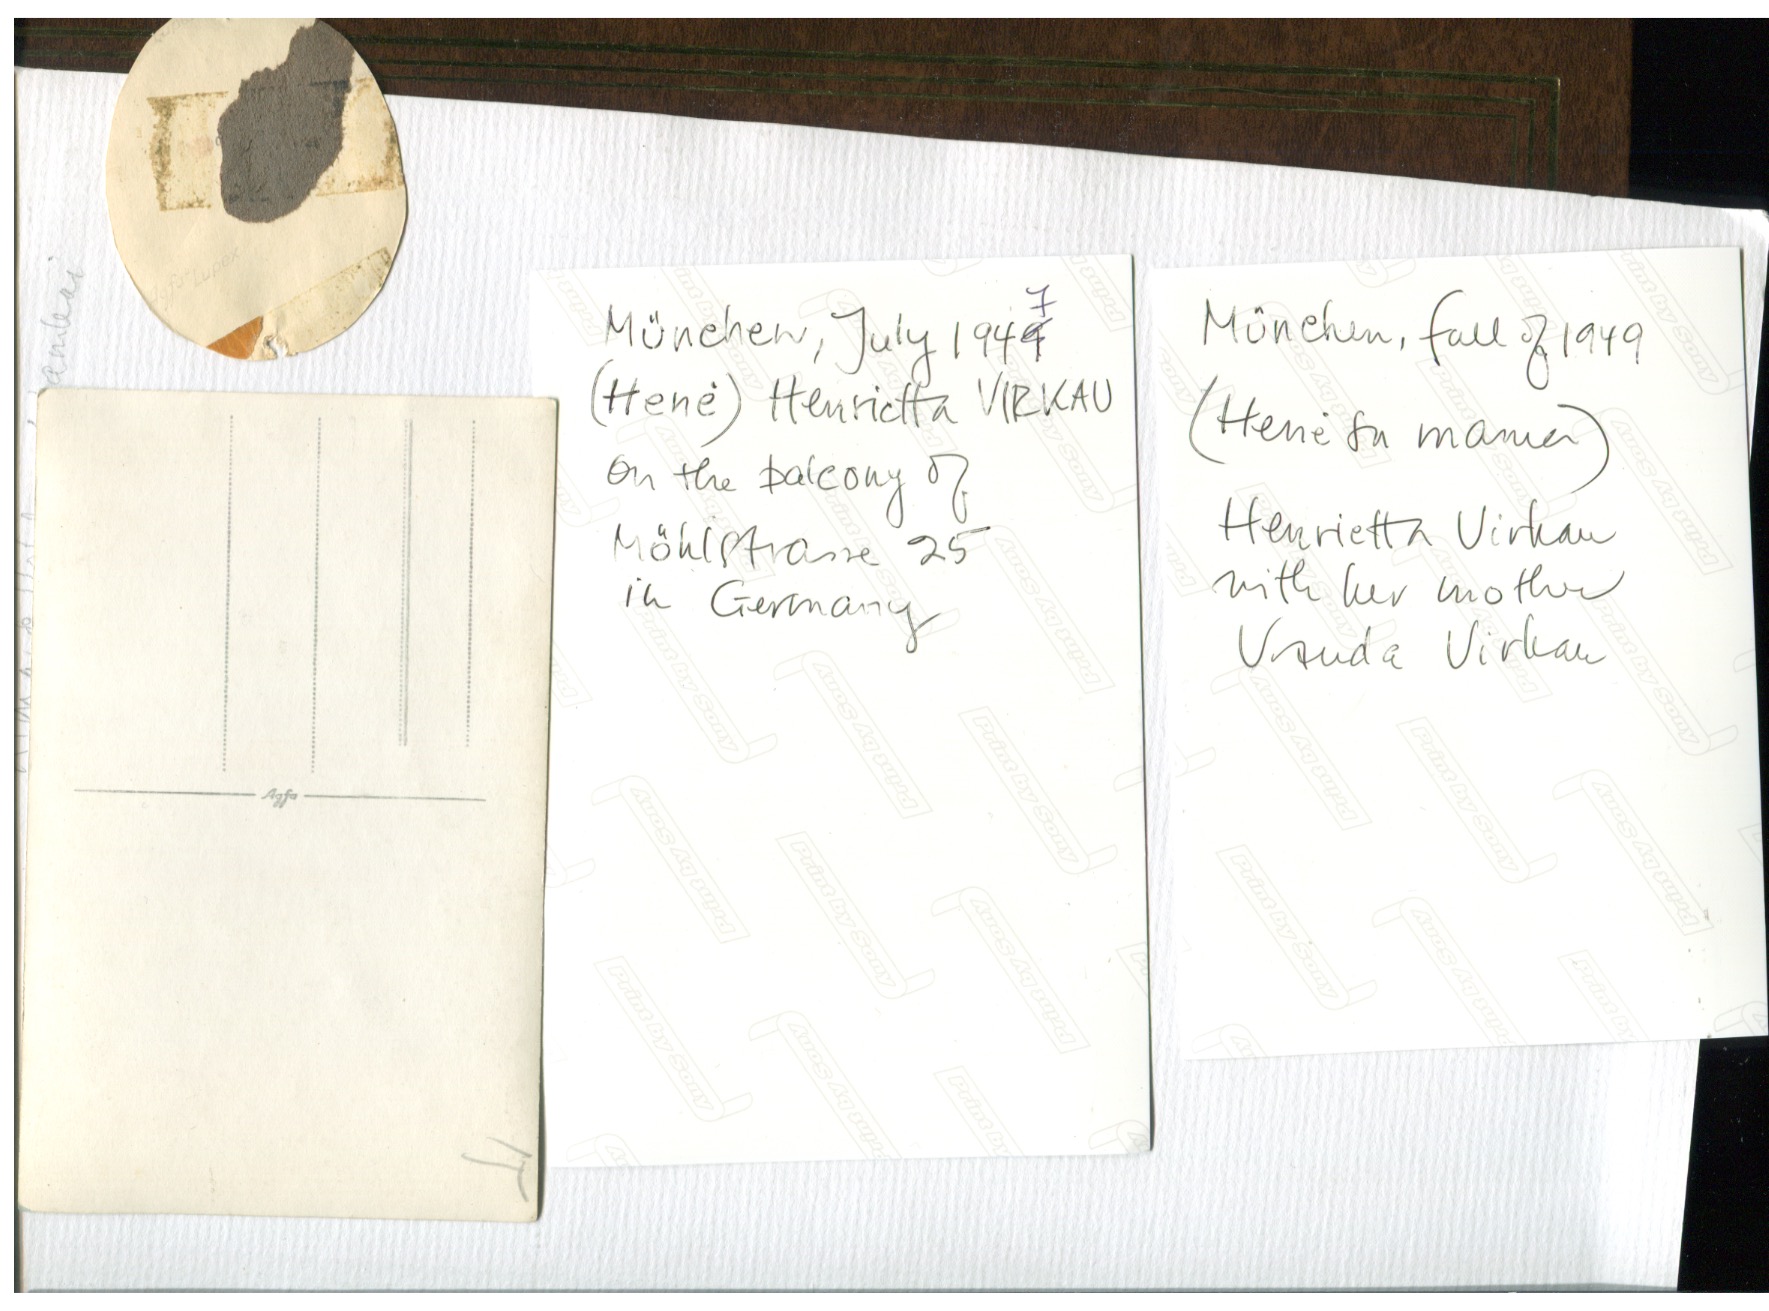 München, July 1947
(Henė) Henrietta VIRKAU
on the balcony of
Möhlstrasse 25
in Germany
München, fall of 1949
(Henė su mama)
Henrietta Virkau
with her mother
Vanda Virkau
Agfa
Lupex
Print by Sony